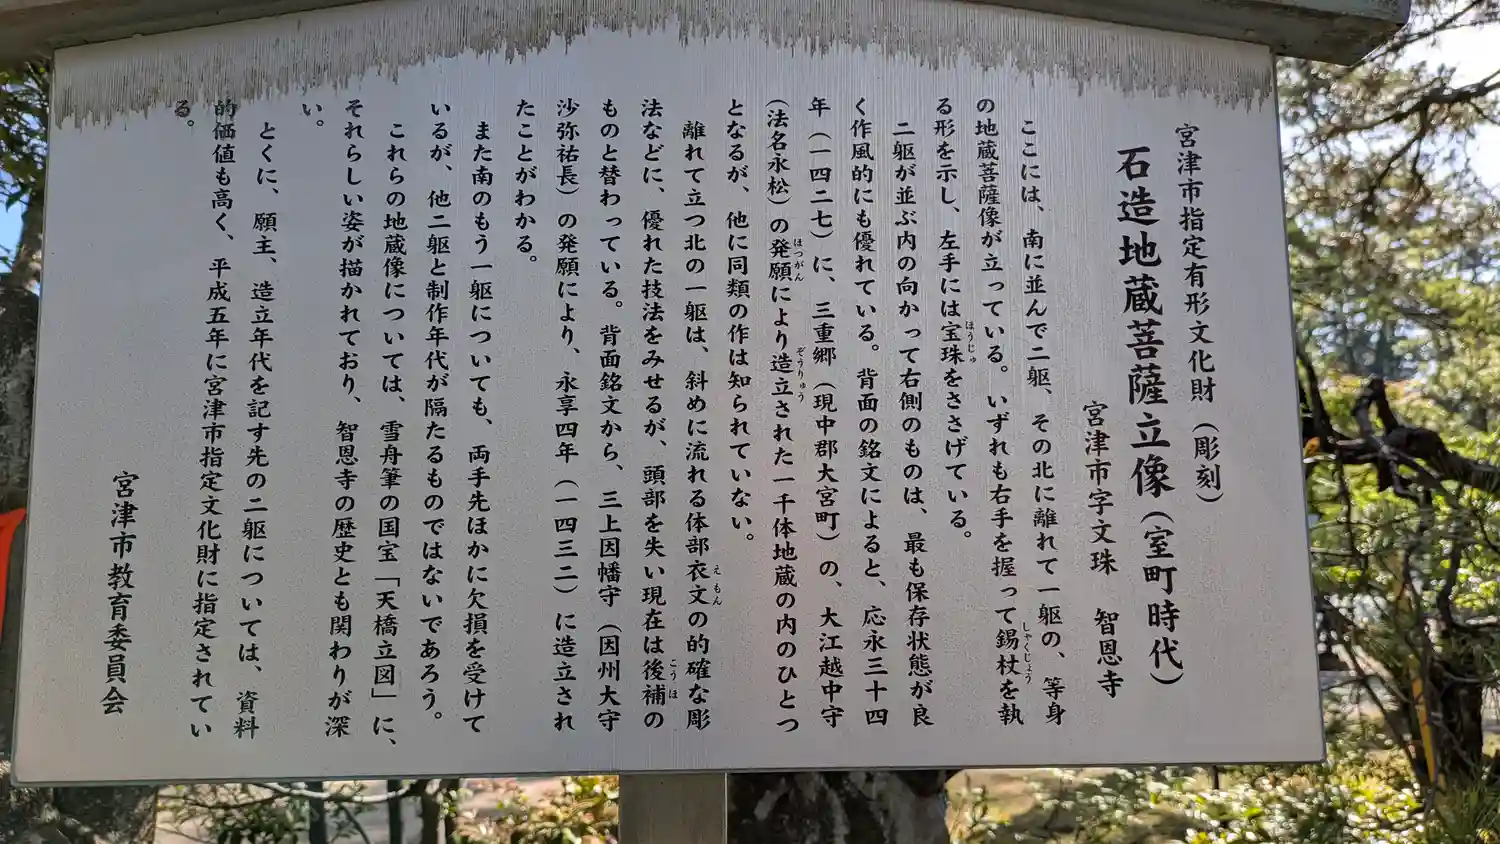 宮津市指定有形文化財（彫刻）
石造地蔵菩薩立像（室町時代）
宮津市字文珠　智恩寺
ここには、南に並んで二躯、その北に離れて一躯の、等身
の地蔵菩薩像が立っている。いずれも右手を握って錫杖を執
る形を示し、左手には宝珠をささげている。
二躯が並ぶ内の向かって右側のものは、最も保存状態が良
く作風的にも優れている。背面の銘文によると、応永三十四
年（一四二七）に、三重郷（現中郡大宮町）の、大江越中守
（法名永松）の発願により造立された一千体地蔵の内のひとつ
となるが、他に同類の作は知られていない。
離れて立つ北の一躯は、斜めに流れる体部衣文の的確な彫
法などに、優れた技法をみせるが、頭部を失い現在は後補の
ものと替わっている。背面銘文から、三上因幡守（因州大守
沙弥祐長）の発願により、永享四年（一四三二）に造立され
たことがわかる。
また南のもう一躯についても、両手先ほかに欠損を受けて
いるが、他二躯と制作年代が隔たるものではないであろう。
これらの地蔵像については、雪舟筆の国宝「天橋立図」に、
それらしい姿が描かれており、智恩寺の歴史とも関わりが深
い。
とくに、願主、造立年代を記す先の二躯については、資料
的価値も高く、平成五年に宮津市指定文化財に指定されてい
る。
宮津市教育委員会
しゃくじょう
ほうじゅ
ほつがん
ぞうりゅう
えもん
こうほ